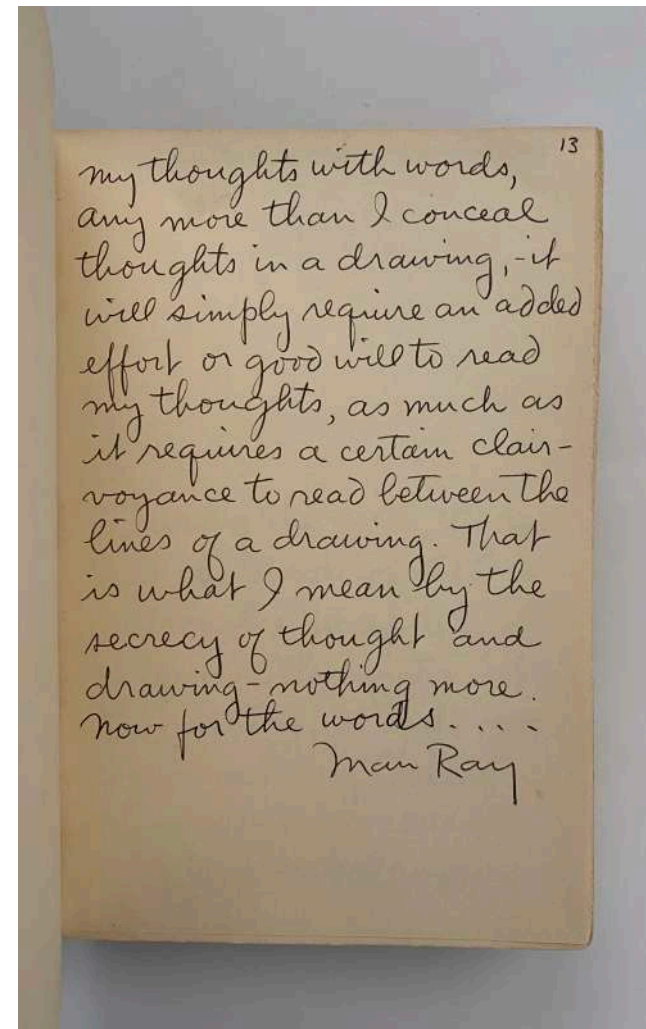 13
my thoughts with words,
any more than I conceal
thoughts in a drawing,-it
will simply require an added
effort or good will to read
my thoughts, as much as
it requires a certain clair-
voyance to read between the
lines of a drawing. That
is what I mean by the
secrecy of thought and
drawing-nothing more.
Now for the words.....
Man Ray